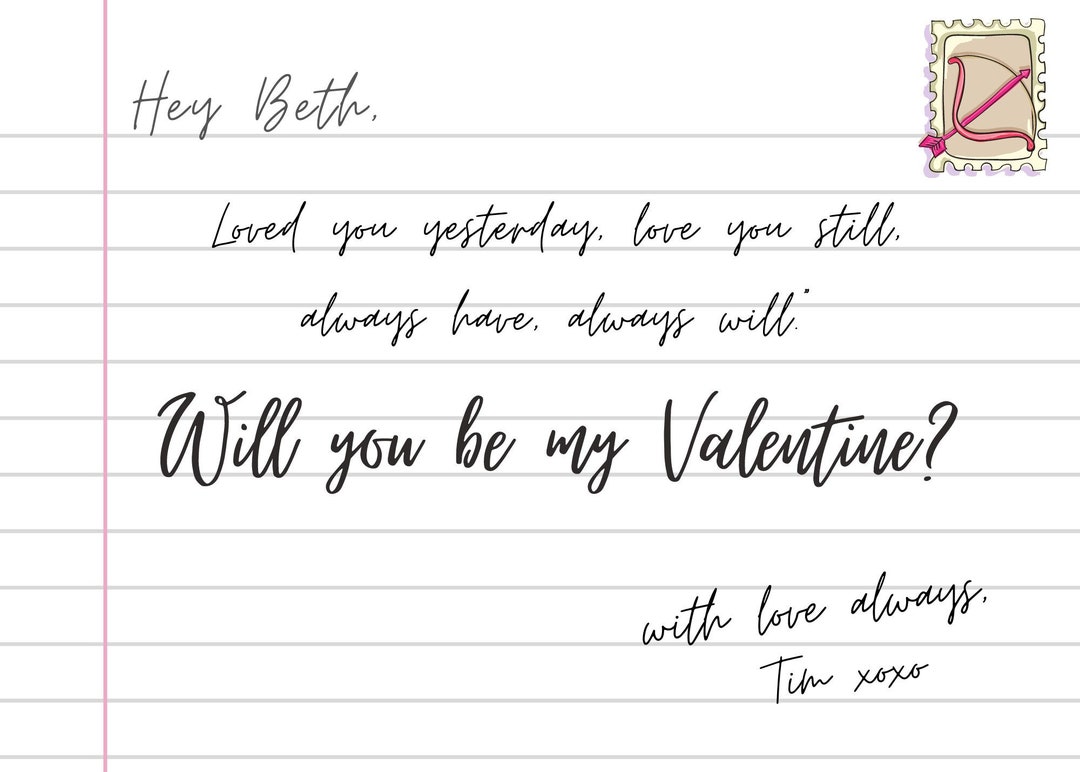 Hey Beth,
Loved you yesterday, love you still,
always have, always will."
Will you be my Valentine?
with love always,
Tim xoxo